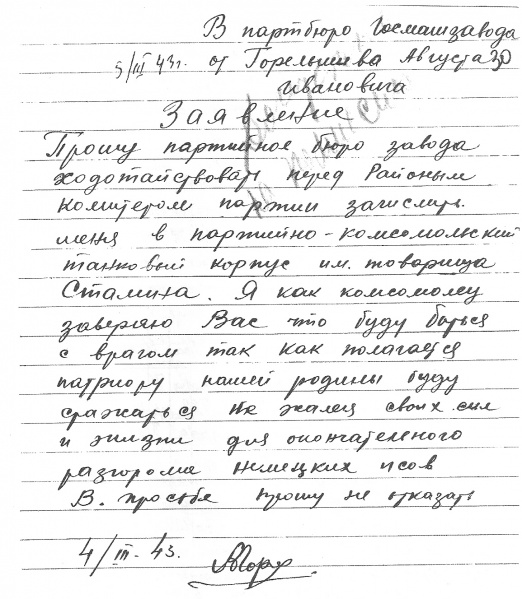 В партбюро Госмашзавода
5/III 43г. от Горельшева Августа
Ивановича
Заявление
Прошу партийное бюро завода
ходотайствовать перед Районым
комитетом партии зачислить
меня в партийно-комсомольский
танковый корпус им. товарища
Сталина. Я как комсомолец
заверяю Вас что буду боться
с врагом так как полагается
патриоту нашей родины буду
сражаться не жалея своих сил
и жизни для окончательного
разгорома немецких псов
В. просьбе прошу не отказать
4/III-43.